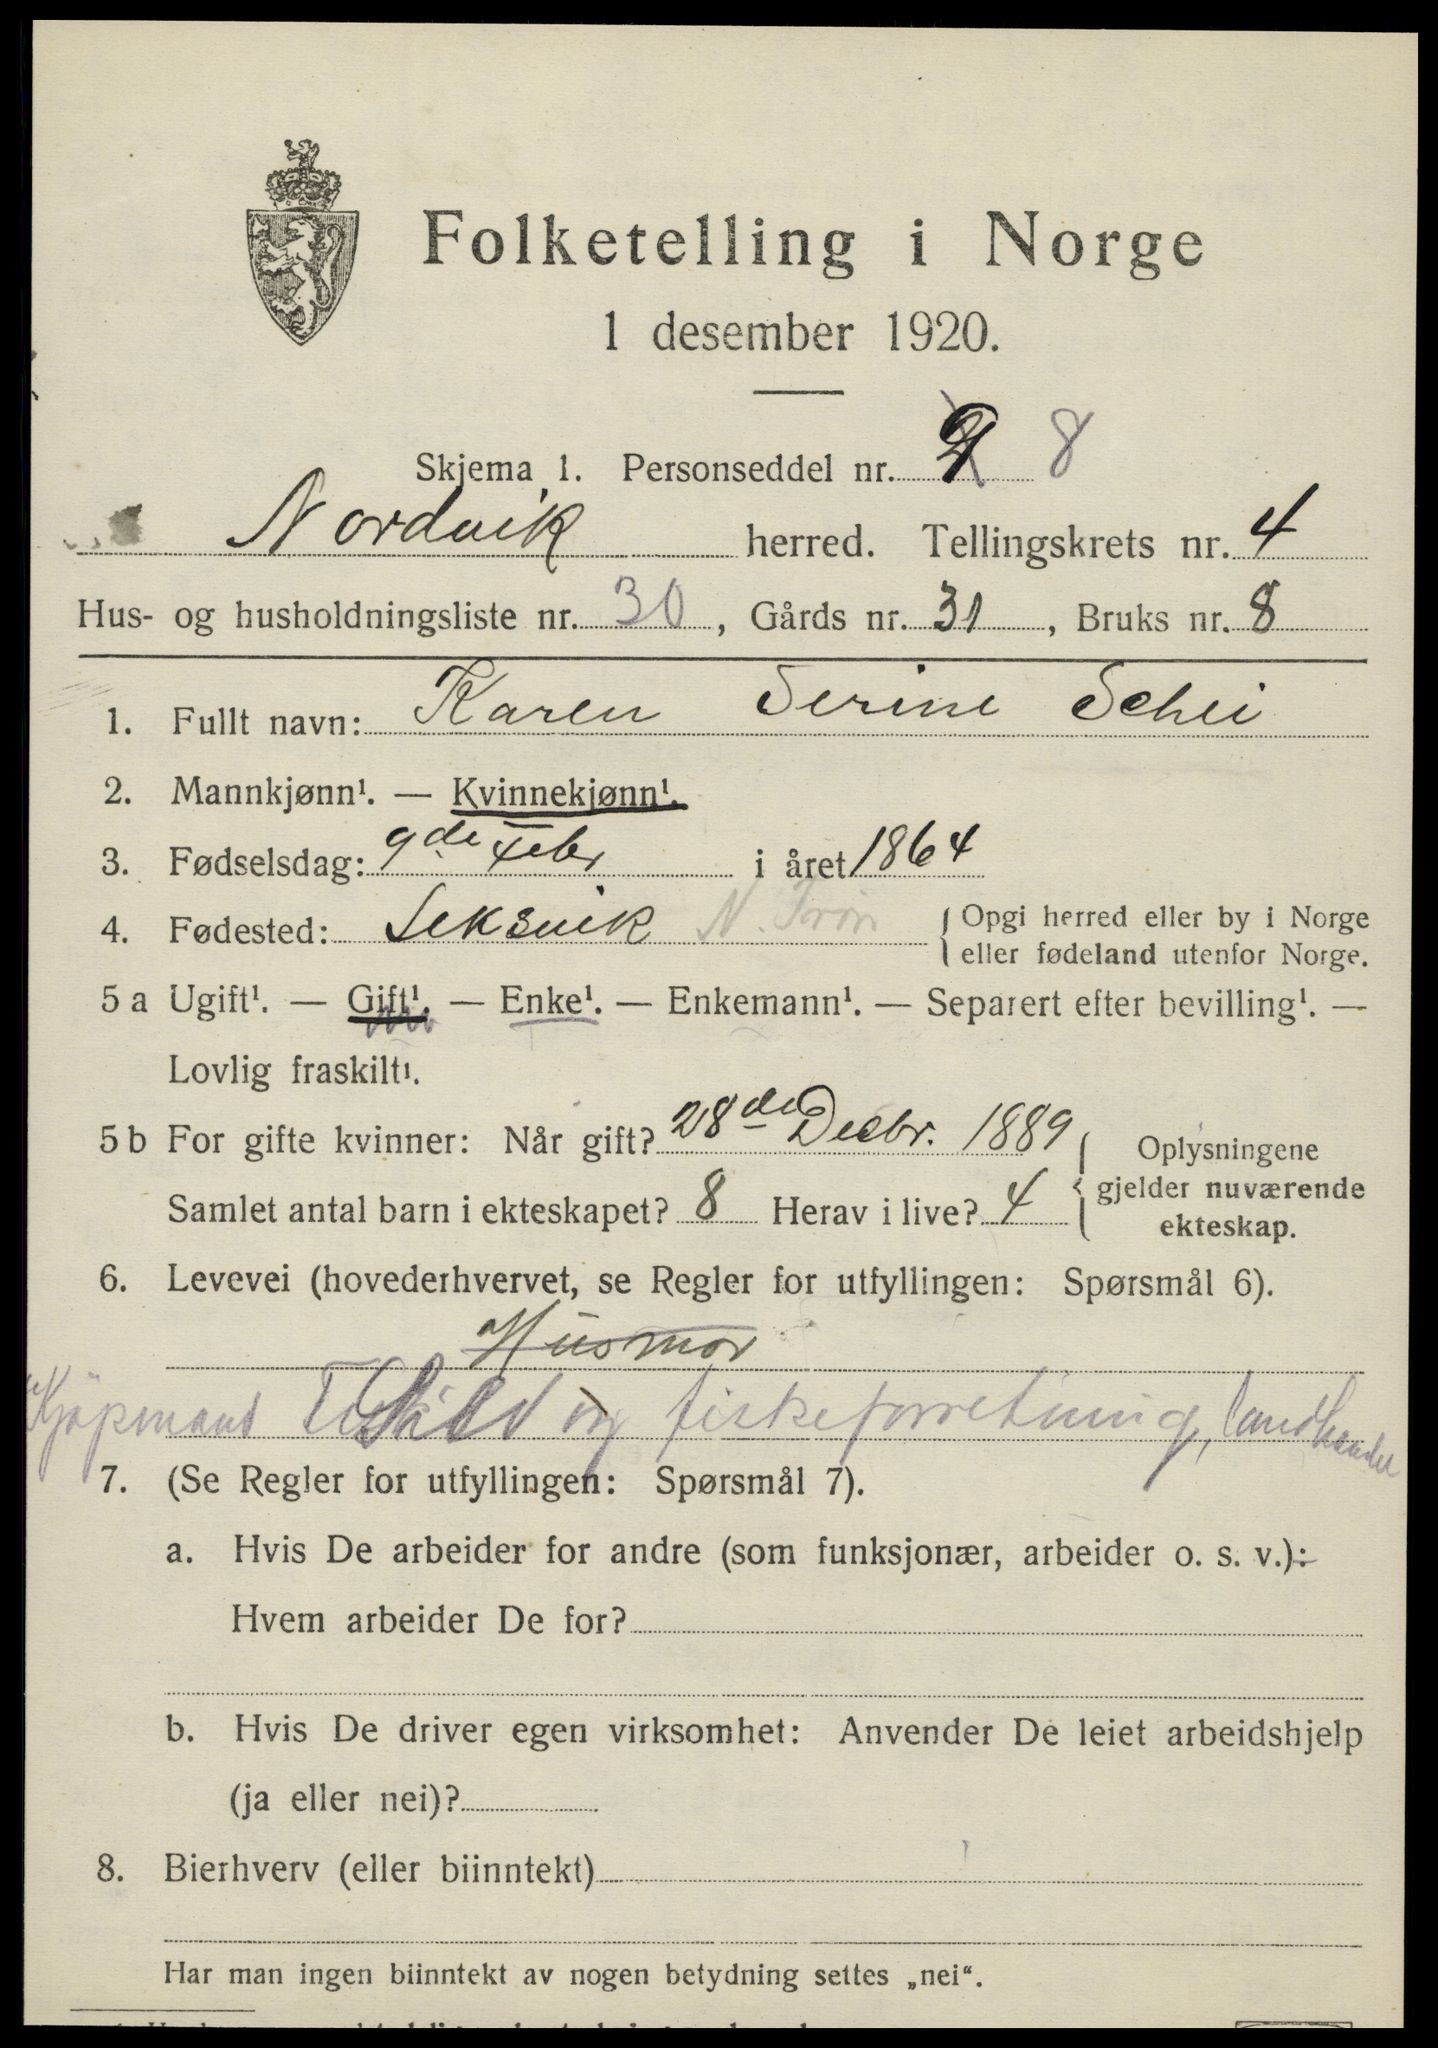 Folketelling i Norge
1 desember 1920.
Skjema 1. Personseddel nr. 8
Nordvik herred. Tellingskrets nr. 4
Hus- og husholdningsliste nr. 30, Gårds nr. 31, Bruks nr. 8
1. Fullt navn: Karen Serine Schei
2. Mannkjønn¹. — Kvinnekjønn¹.
3. Fødselsdag: 9de Febr i året 1864
4. Fødested: Leksvik N. Trøn {Opgi herred eller by i Norge
eller fødeland utenfor Norge.
5 a Ugift¹. — Gift¹. — Enke¹. — Enkemann¹. — Separert efter bevilling¹. —
Lovlig fraskilt¹.
5 b For gifte kvinner: Når gift? 28de Decbr. 1889
Samlet antal barn i ekteskapet? 8 Herav i live? 4
{Oplysningene
gjelder nuværende
ekteskap.
6. Levevei (hovederhvervet, se Regler for utfyllingen: Spørsmål 6).
Husmor
Kjøpmans og fiskeforretning, landhandel
7. (Se Regler for utfyllingen: Spørsmål 7).
a. Hvis De arbeider for andre (som funksjonær, arbeider o. s. v.):
Hvem arbeider De for?
b. Hvis De driver egen virksomhet: Anvender De leiet arbeidshjelp
(ja eller nei)?
8. Bierhverv (eller biinntekt)
Har man ingen biinntekt av nogen betydning settes „nei“.